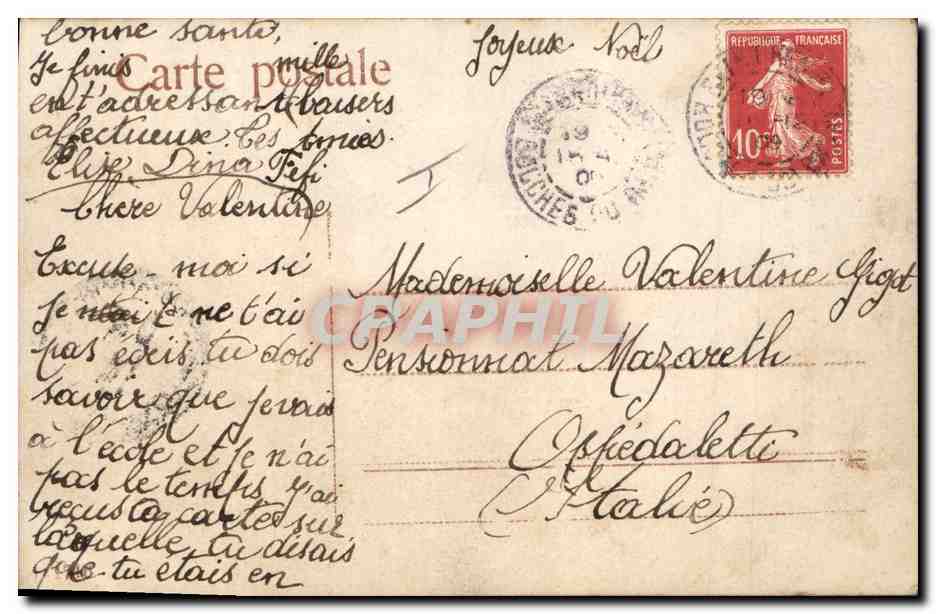 bonne santé,
Je finis mille
en t'adressant baisers
affectueux. Tes amies.
Elise Dina Fifi
Joyeux Noël
Carte postale
REPUBLIQUE FRANÇAISE
10
POSTES
BOUCHES DU RHONE
Chère Valentine
Excuse-moi si
je ne t'ai
pas écris, tu dois
savoir que je vais
à l'école et je n'ai
pas le temps. J'ai
reçus ta carte sur
laquelle tu disais
que tu étais en
Mademoiselle Valentine Gigot
Pensionnat Nazareth
Ospédaletti
(Italie)
CPAPHIL